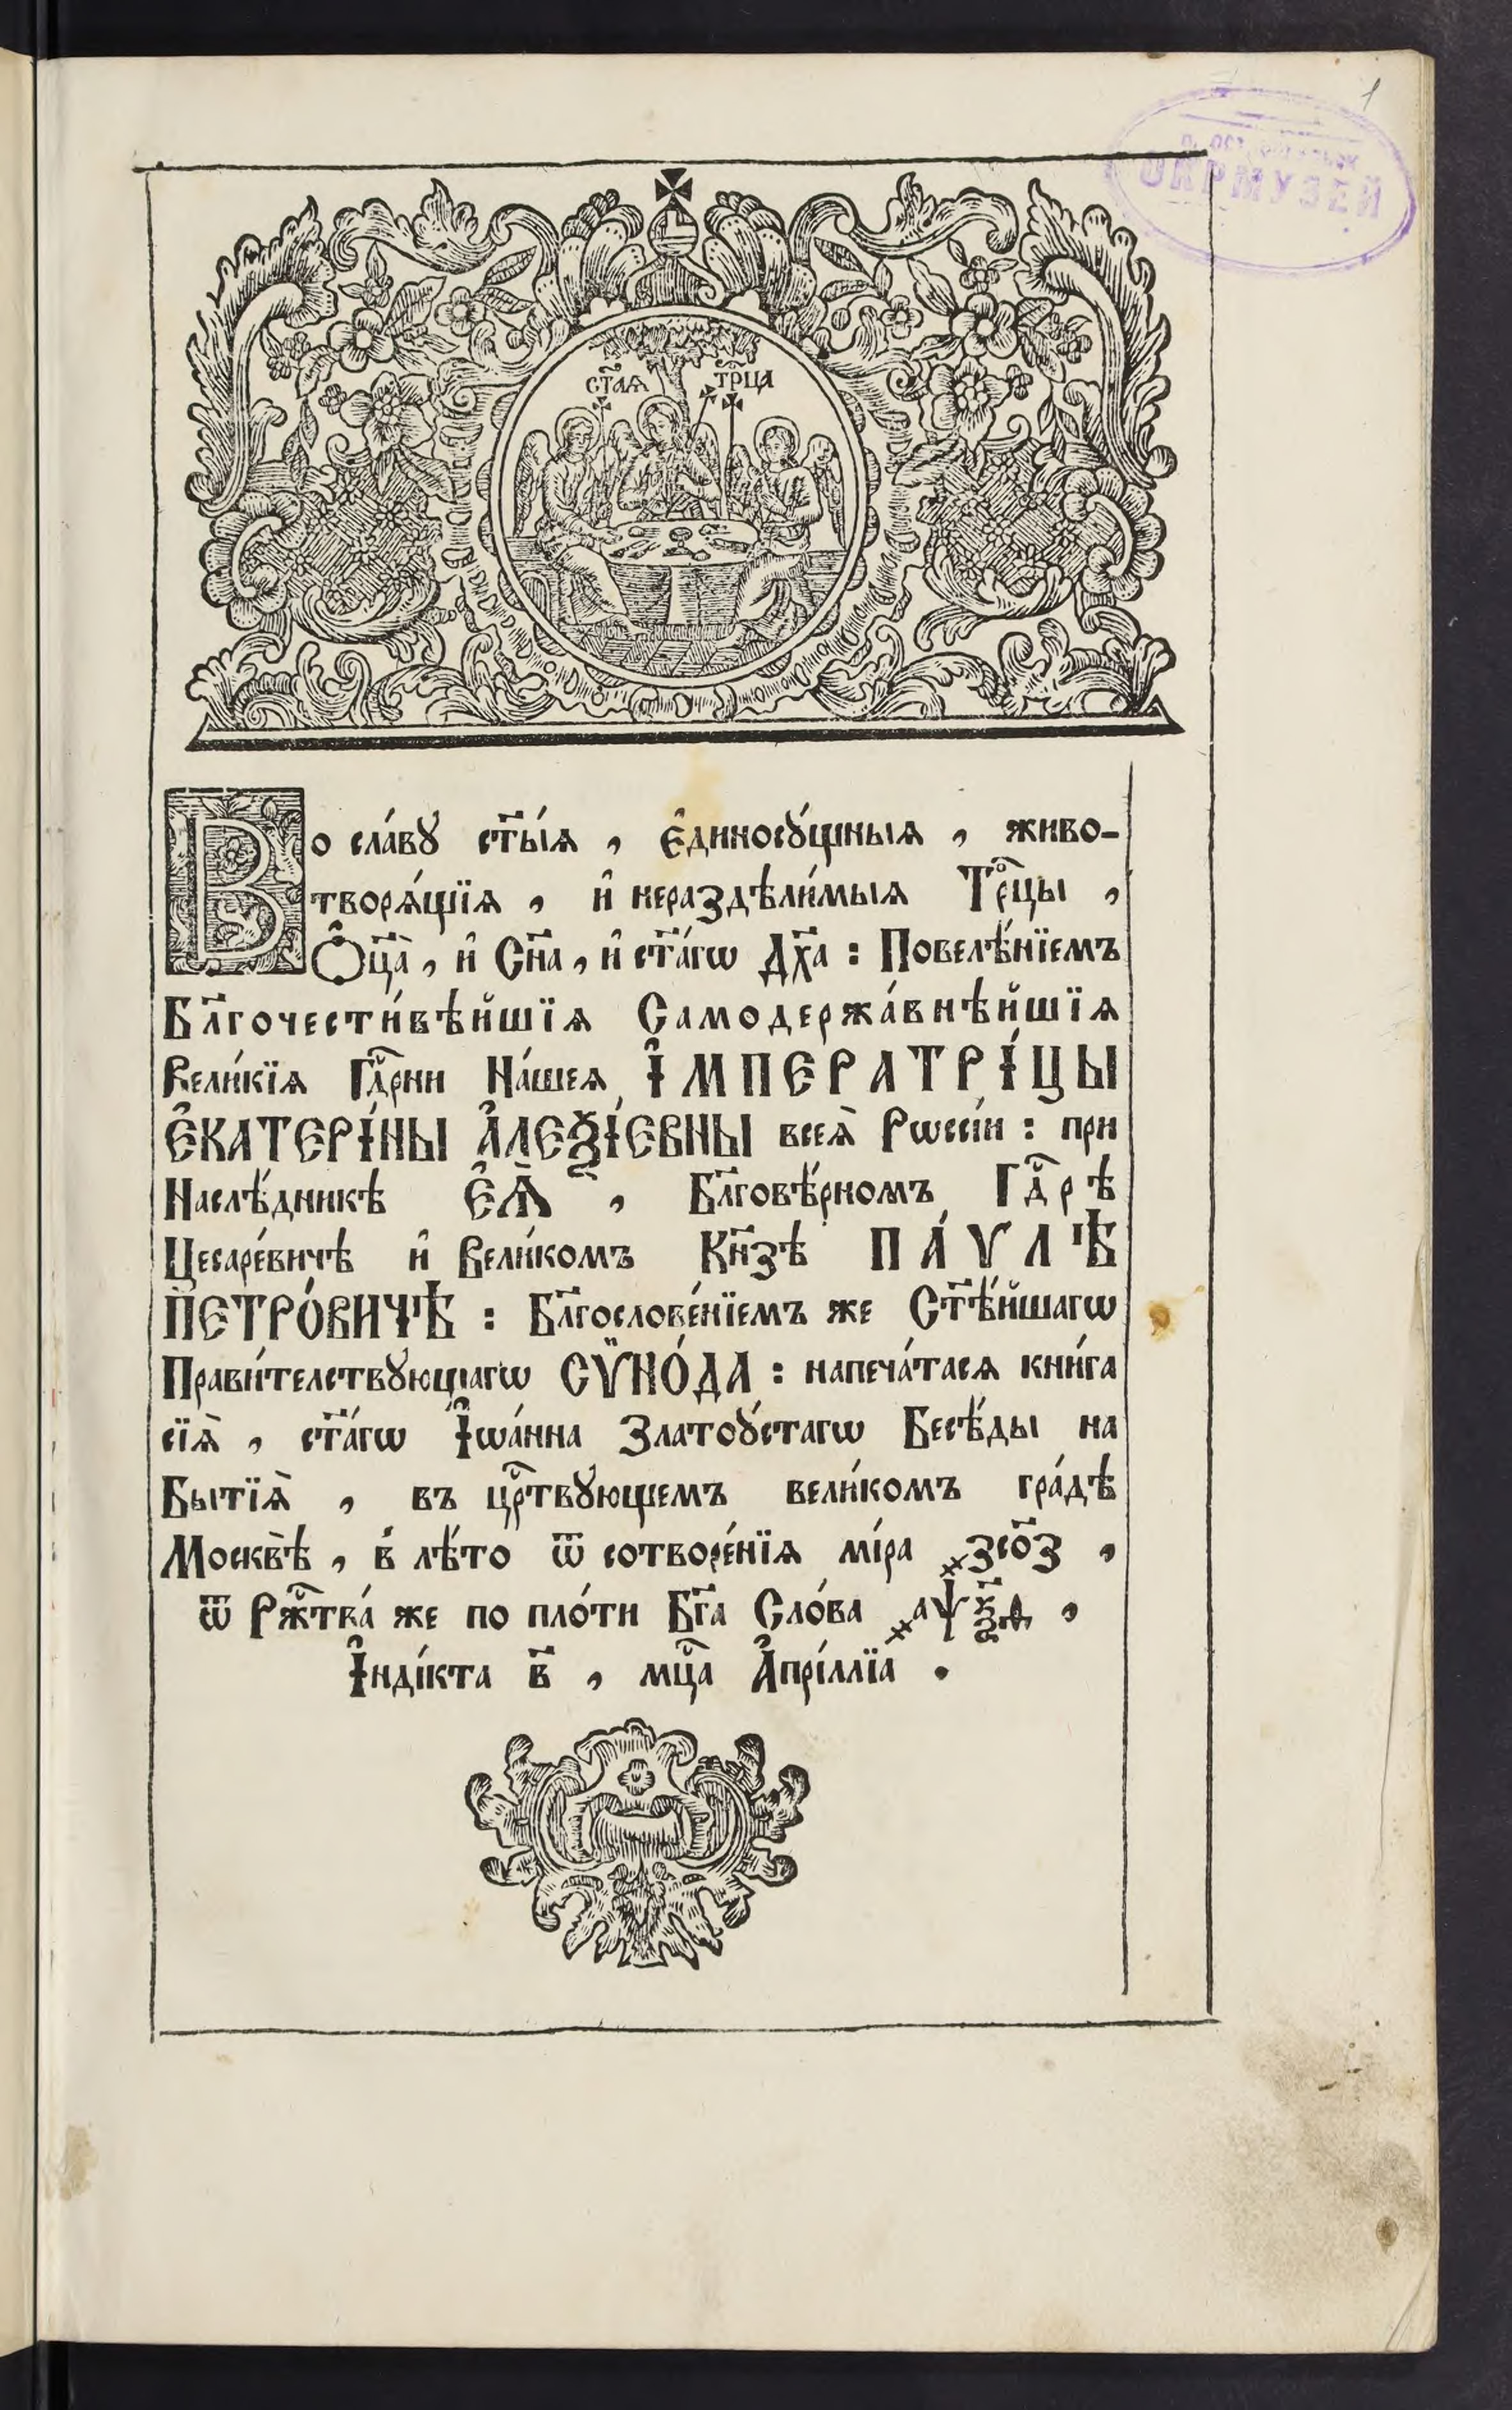 1
ОКРМУЗЕЙ
СТ҃АѦ ТРⷪ҇ЦА
Во сла́вꙋ ст҃ы́ѧ , є҆диносꙋ́щныѧ , живо-
творѧ́щїѧ , и҆ нераздѣли́мыѧ Трⷪ҇цы ,
Ѻ҆ц҃а̀ , и҆ Сн҃а , и҆ ст҃а́гѡ Дх҃а : Повелѣ́нїемъ
Бл҃гочести́вѣйшїѧ Самодержа́внѣйшїѧ
Вели́кїѧ Гдⷭ҇рни На́шеѧ І҆МПЕРАТРІ́ЦЫ
Є҆КАТЕРІ́НЫ А҆ЛЕѮІ́ЕВНЫ всеѧ̀ Рѡссі́и : при
Наслѣ́дникѣ Є҆Ѧ̀ , Бл҃говѣ́рномъ Гдⷭ҇рѣ
Цесаре́вичѣ и҆ Вели́комъ Кн҃зѣ ПА́ѴЛѢ
ПЕТРО́ВИЧѢ : Бл҃гослове́нїемъ же Ст҃ѣ́йшагѡ
Прави́телствꙋющагѡ СѴ̈НО́ДА : напеча́тасѧ кни́га
сїѧ̀ , ст҃а́гѡ І҆ѡа́нна Златоꙋ́стагѡ Бесѣ́ды на
Бытїѧ̀ , въ црⷭ҇твꙋющемъ вели́комъ гра́дѣ
Москвѣ̀ , в̾ лѣ́то ѿ сотворе́нїѧ мі́ра ҂зсо҃з ,
ѿ Ржⷭ҇тва́ же по пло́ти Бг҃а Сло́ва ҂аѱѯ҃ѳ ,
І҆нді́кта в҃ , мцⷭ҇а А҆прі́ллїа .